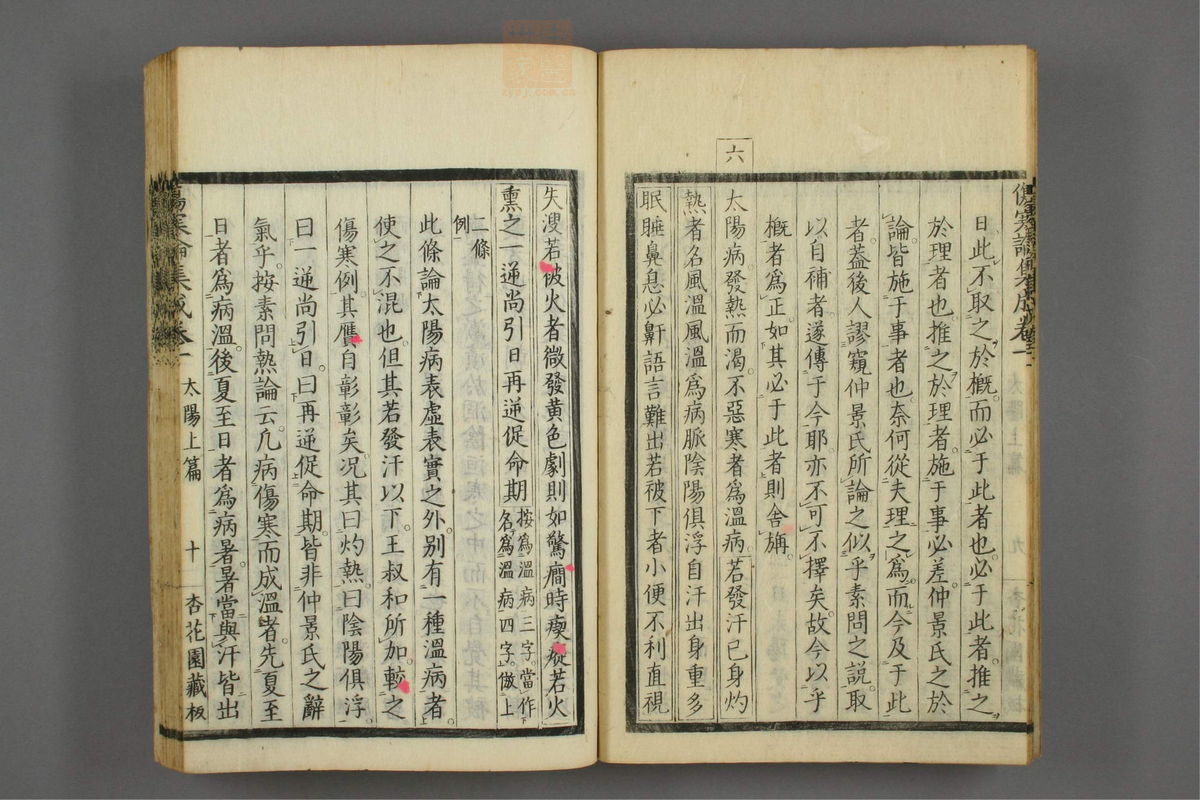 傷寒論集成卷一
日此不取之於概而必于此者也必于此者推之
於理者也推之於理者施于事必差仲景氏之於
論皆施于事者也奈何從夫理之爲而今及于此
者蓋後人謬窺仲景氏所論之似乎素問之說取
以自補者遂傳于今耶亦不可不擇矣故今以乎
概者爲正如其必于此者則舍旃
六
太陽病發熱而渴不惡寒者爲溫病若發汗已身灼
熱者名風溫風溫爲病脈陰陽俱浮自汗出身重多
眠睡鼻息必鼾語言難出若被下者小便不利直視
失溲若被火者微發黃色劇則如驚癎時瘈瘲若火
熏之一逆尚引日再逆促命期按爲溫病三字當作名爲溫病四字倣上
二條例
此條論太陽病表虛表實之外別有一種溫病者
使之不混也但其若發汗以下王叔和所加較之
傷寒例其贋自彰彰矣况其曰灼熱曰陰陽俱浮
曰一逆尚引日曰再逆促命期皆非仲景氏之辭
氣乎按素問熱論云凡病傷寒而成溫者先夏至
日者爲病溫後夏至日者爲病暑暑當與汗皆出
傷寒論集成卷一 太陽上篇 十 杏花園藏板